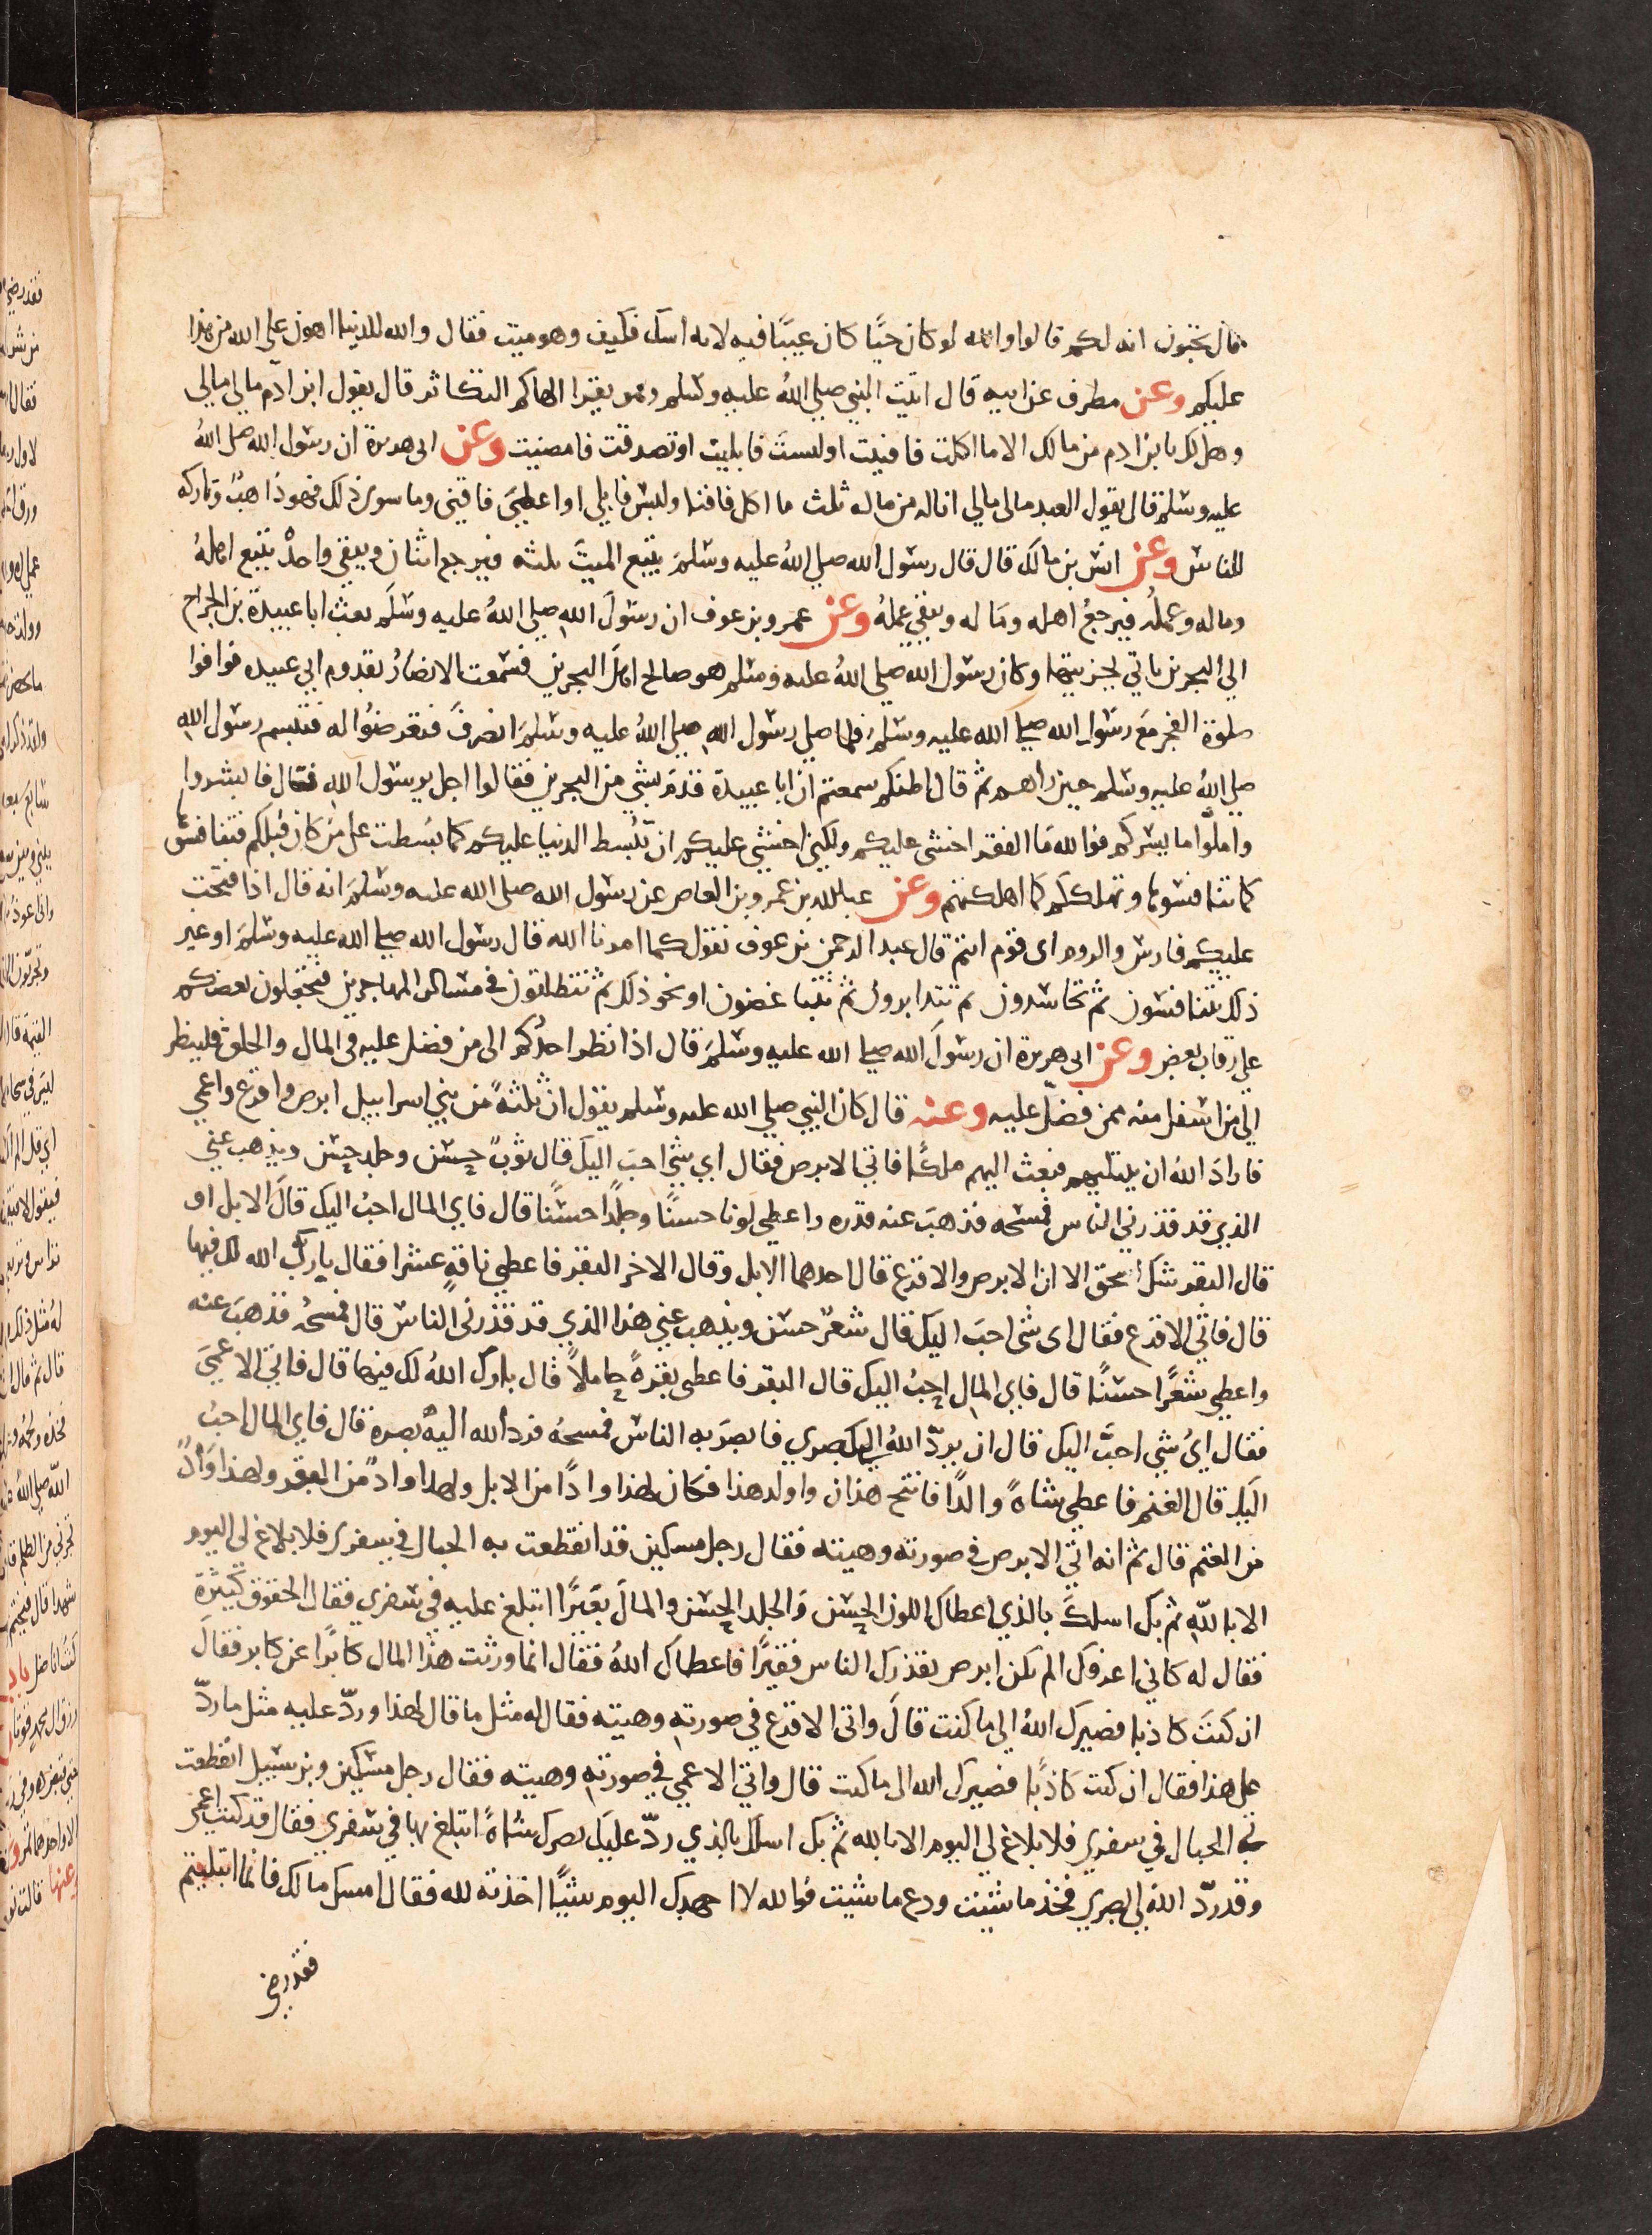 قال تحبون انه لكم قالوا والله لو كان حيًّا كان عيبًا فيه لانه اسك فكيف وهو ميت فقال والله للدنيا اهون على الله من هذا
عليكم وعن مطرف عن ابيه قال اتيت النبي صلي الله عليه وسلم وهو يقرا الهاكم التكاثر قال يقول ابن ادم مالي مالي
وهل لك يا بن ادم من مالك الا ما اكلت فافنيت او لبست فابليت او تصدقت فامضيت وعن ابي هريرة ان رسول الله صلى الله
عليه وسلم قال يقول العبد مالى مالي انما له من ماله ثلث ما اكل فافنا او لبس فابلي او اعطى فاقتني وما سوى ذلك فهو ذاهبٌ وتاركه
للناس وعن انس بن مالك قال قال رسول الله صلي الله عليه وسلم يتبع الميتَ ثلثه فيرجع اثنان ويبقي واحدٌ يتبع اهلهُ
وماله وعملُه فيرجعُ اهله وماله ويبقي عملهُ وعن عمرو بن عوف ان رسولَ الله صلي اللهُ عليه وسلَم بعث ابا عبيدة بن الجراح
الي البحرين ياتي بجزيتها وكان رسول الله صلي اللهُ عليه وسلم هو صالح اهلَ البحرين فسمعت الانصارُ بقدوم ابي عبيده فوافوا
صلوة الفجر مَع رسول الله صلي الله عليه وسلمَ فلما صلي رسول الله صلي اللهُ عليه وسلمَ انصرفَ فتعرضُوا له فتبسم رسول الله
صلي اللهُ عليه وسلم حين راهم ثم قال اظنكم سمعتم ان ابا عبيدة قدمَ بشي من البحرين فقالوا اجل يرسول الله فقال فابشروا
واملوا ما يسركم فوالله مَا الفقر اخشى عليكم ولكني اخشي عليكم ان تُبسط الدنيا عليكم كما بُسطت على من كان قبلكم فتنافسُ
كما تنافسوها وتهلككم كما اهلكتهم وعن عبدالله بن عمرو بن العاص عن رسول الله صلى الله عليه وسلمَ انه قال اذا فتحت
عليكم فارس والروم اى قوم انتم قال عبد الرحمن بن عوف نقول كما امرنا الله قال رسول الله صلي الله عليه وسلمَ او غير
ذلك تتنافسون ثم تحاسدون ثم تتدابرون ثم تتباغضون او نحو ذلك ثم تنطلقون في مساكن المهاجرين فتجعلون بعضكم
علي رقاب بعض وعن ابى هريرة ان رسولَ الله صلي الله عليه وسلمَ قال اذا نظر احدُكم الى من فضل عليه فى المال والخلق فلينظر
الي من اسفل منه ممن فضّل عليه وعنه قال كان النبي صلي الله عليه وسلم يقول ان ثلثةً من بني اسرابيل ابرص واقرع واعمي
فارادَ اللهُ ان يبتليهم فبعث اليهم ملكًا فاتي الابرص فقال اي شي احبَ اليكَ قال لونٌ حسَن وجلد حسَن ويذهب عني
الذي قد قذرني الناس فمسَحه فذهبَ عنه قذره واعطي لونا حسنًا وجلدًا حسَنًا قال فاي المال احبُ اليك قالَ الابل او
قال البقر شك اسحق الا ان الابرص والاقرع قال احدهما الابل وقال الاخر البقر فاعطي ناقةً عشرا فقال بارك الله لك فيها
قال فاتي الاقرع فقال اى شى احبَ اليك قال شعرٌ حسَن ويذهب عني هذا الذي قد قذرنى الناس قال فمسحُه فذهبَ عنه
واعطي شعرًا حسَنًا قال فاي المال احبُ اليك قال البقر فاعطى بقرةً حاملاً قال بارك اللهُ لك فيها قال فاتي الاعميَ
فقال ايُ شي احبَّ اليك قال ان يردّ اللهُ الي بصري فابصرَ به الناس فمسحهُ فرد الله اليه بصره قال فاي المال احبُ
اليك قال الغنم فاعطي شاةً والدًا فانتج هذان واولد هذا فكان لهذا وادًا من الابل ولهذا وادً من البقر ولهذا وادً
من الغنم قال ثم انه اتي الابرص في صورته وهيته فقال رجل مسكين قد انقطعت به الحبال في سفري فلا بلاغ لي اليوم
الا باللّهِ ثم بك اسلكَ بالذي اعطاك اللون الحسَن وَالجلد الحسَن والمالَ بعَيرًا اتبلغ عليه في سَفري فقال الحقوق كَثيرَة
فقال له كاني اعرفك الم تكن ابرص يقذرك الناس فقيرًا فاعطاكَ اللهُ فقال انما ورثت هذا المال كابرًا عن كابر فقالَ
ان كنتَ كاذبا فصيرك اللهُ الى ما كنت قالَ واتى الاقرع في صورته وهيته فقال له مثل ما قال لهذا وردّ عليه مثل ما ردّ
على هذا فقال ان كنت كاذبًا فصيرك الله الى ما كنت قال واتي الاعمي في صورته وهيته فقال رجل مسَكين وبن سَبيل انقطعت
بي الحبال في سفري فلا بلاغ لي اليوم الا بالله ثم بك اسلك بالذي ردّ عليك بصرك شاةً اتبلغ بها في سَفري فقال قد كنت اعمي
وقد ردّ الله الي بصري فخذ ما شيت ودع ما شيت فوالله لا اجهدك اليوم شيًا اخذته لله فقال امسك مالك فانما ابتليتم
فقد رضي